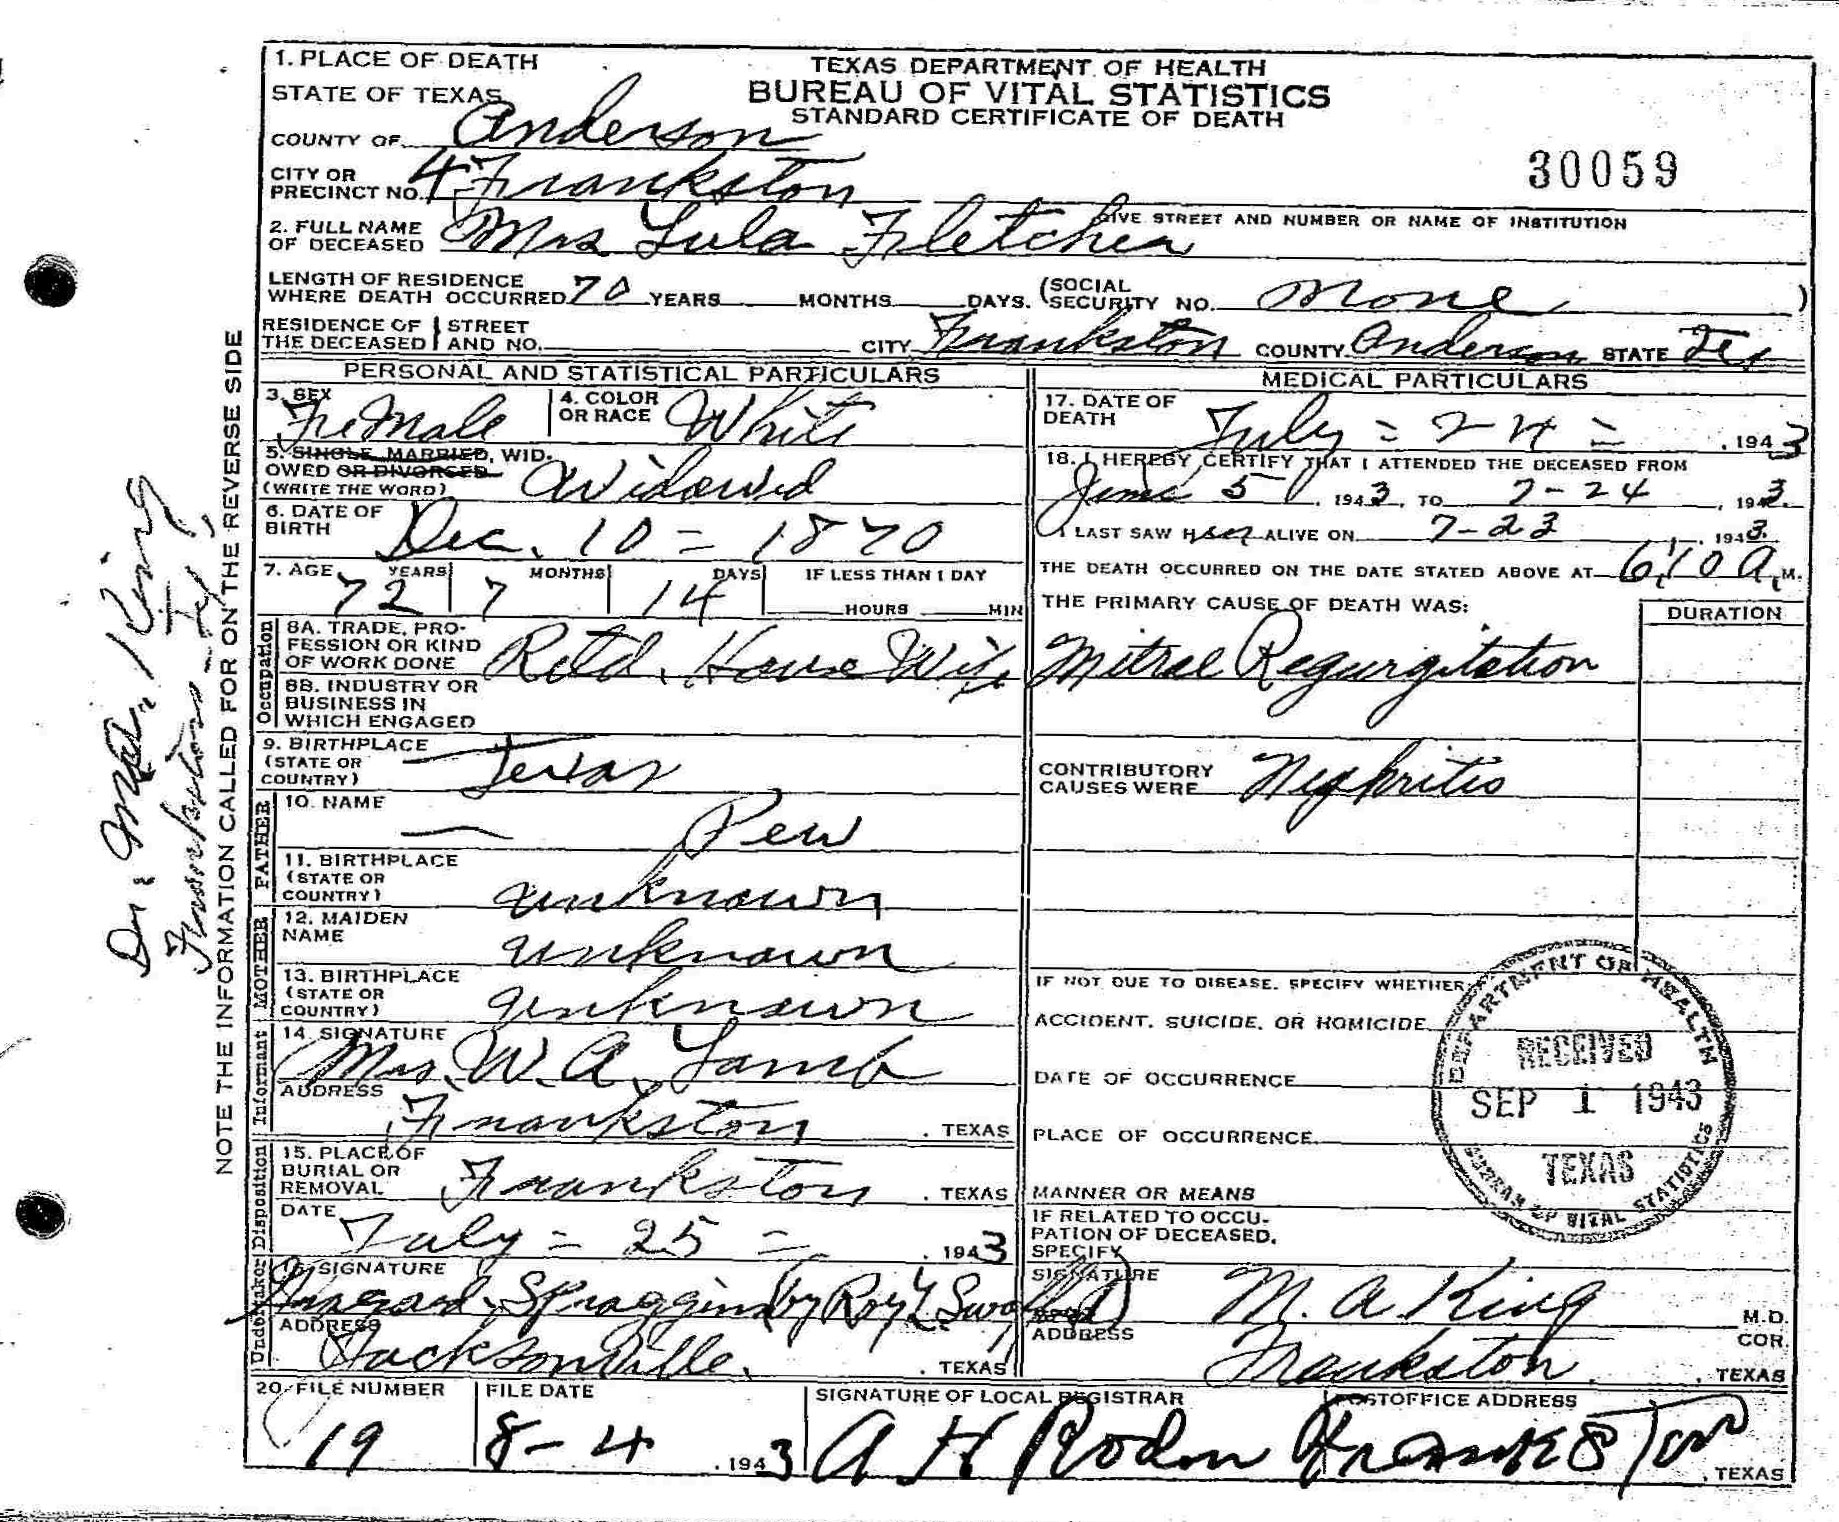 1. PLACE OF DEATH
STATE OF TEXAS
TEXAS DEPARTMENT OF HEALTH
BUREAU OF VITAL STATISTICS
STANDARD CERTIFICATE OF DEATH
COUNTY OF Anderson
CITY OR PRECINCT NO. 4 Frankston
30059
GIVE STREET AND NUMBER OR NAME OF INSTITUTION
2. FULL NAME OF DECEASED Mrs Lula Fletcher
LENGTH OF RESIDENCE WHERE DEATH OCCURRED 70 YEARS MONTHS DAYS. (SOCIAL SECURITY NO. None )
RESIDENCE OF THE DECEASED STREET AND NO. CITY Frankston COUNTY Anderson STATE Tex
PERSONAL AND STATISTICAL PARTICULARS
3. SEX FeMale 4. COLOR OR RACE White
5. SINGLE, MARRIED, WIDOWED OR DIVORCED (WRITE THE WORD) Widowed
6. DATE OF BIRTH Dec. 10 = 1870
7. AGE 72 YEARS 7 MONTHS 14 DAYS IF LESS THAN 1 DAY HOURS MIN
Occupation
8A. TRADE, PROFESSION OR KIND OF WORK DONE Retd. House Wife
8B. INDUSTRY OR BUSINESS IN WHICH ENGAGED
9. BIRTHPLACE (STATE OR COUNTRY) Texas
FATHER
10. NAME — Pew
11. BIRTHPLACE (STATE OR COUNTRY) unknown
MOTHER
12. MAIDEN NAME unknown
13. BIRTHPLACE (STATE OR COUNTRY) unknown
Informant
14. SIGNATURE Mrs. W. A. Lamb
ADDRESS Frankston, TEXAS
Disposition
15. PLACE OF BURIAL OR REMOVAL Frankston, TEXAS
DATE July = 25 = , 1943
Undertaker
SIGNATURE Spraggins (by Roy L.
ADDRESS Jacksonville. , TEXAS
MEDICAL PARTICULARS
17. DATE OF DEATH July = 24 = , 1943
18. I HEREBY CERTIFY THAT I ATTENDED THE DECEASED FROM
June 5, 1943, TO 7-24, 1943.
I LAST SAW Her ALIVE ON 7-23, 1943.
THE DEATH OCCURRED ON THE DATE STATED ABOVE AT 6:10 A. M.
THE PRIMARY CAUSE OF DEATH WAS: DURATION
Mitral Regurgitation
CONTRIBUTORY CAUSES WERE Nephritis
IF NOT DUE TO DISEASE, SPECIFY WHETHER:
ACCIDENT, SUICIDE, OR HOMICIDE
DATE OF OCCURRENCE
PLACE OF OCCURRENCE
MANNER OR MEANS
IF RELATED TO OCCUPATION OF DECEASED, SPECIFY
SIGNATURE M. A King M.D.
COR.
ADDRESS Frankston. , TEXAS
DEPARTMENT OF HEALTH
RECEIVED
SEP 1 1943
TEXAS
BUREAU OF VITAL STATISTICS
20. FILE NUMBER 19 FILE DATE 8-4, 1943 SIGNATURE OF LOCAL REGISTRAR A H POSTOFFICE ADDRESS Frankston, TEXAS
NOTE THE INFORMATION CALLED FOR ON THE REVERSE SIDE
Dr. King
Frankston Tex